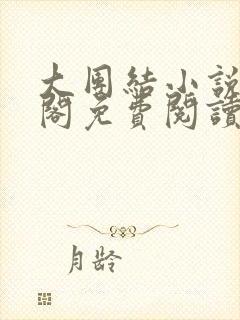 大團結小說
閣免費閱讀
月齡